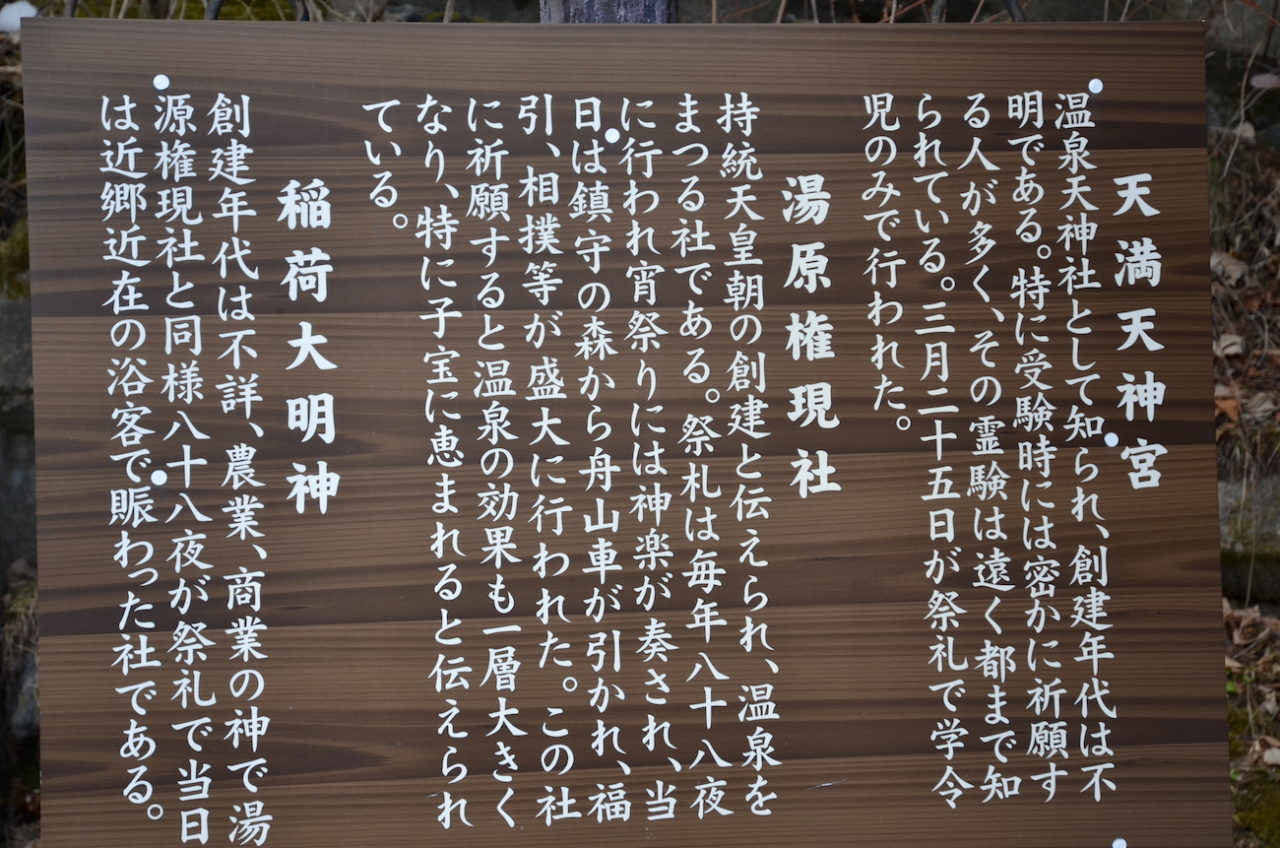 天満天神宮
温泉天神社として知られ、創建年代は不
明である。特に受験時には密かに祈願す
る人が多く、その霊験は遠く都まで知
られている。三月二十五日が祭礼で学令
児のみで行われた。
湯原権現社
持統天皇朝の創建と伝えられ、温泉を
まつる社である。祭札は毎年八十八夜
に行われ宵祭りには神楽が奏され、当
日は鎮守の森から舟山車が引かれ、福
引、相撲等が盛大に行われた。この社
に祈願すると温泉の効果も一層大きく
なり、特に子宝に恵まれると伝えられ
ている。
稲荷大明神
創建年代は不詳、農業、商業の神で湯
源権現社と同様八十八夜が祭礼で当日
は近郷近在の浴客で賑わった社である。